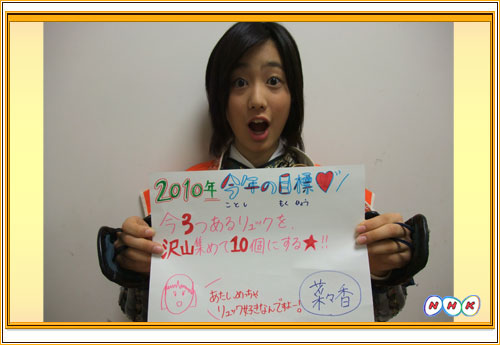 2010年 今年の目標♥
ことし もくひょう
今3つあるリュックを、
沢山集めて10個にする★!!
あたしめちゃ
リュック好きなんですよー!
菜々香
NHK